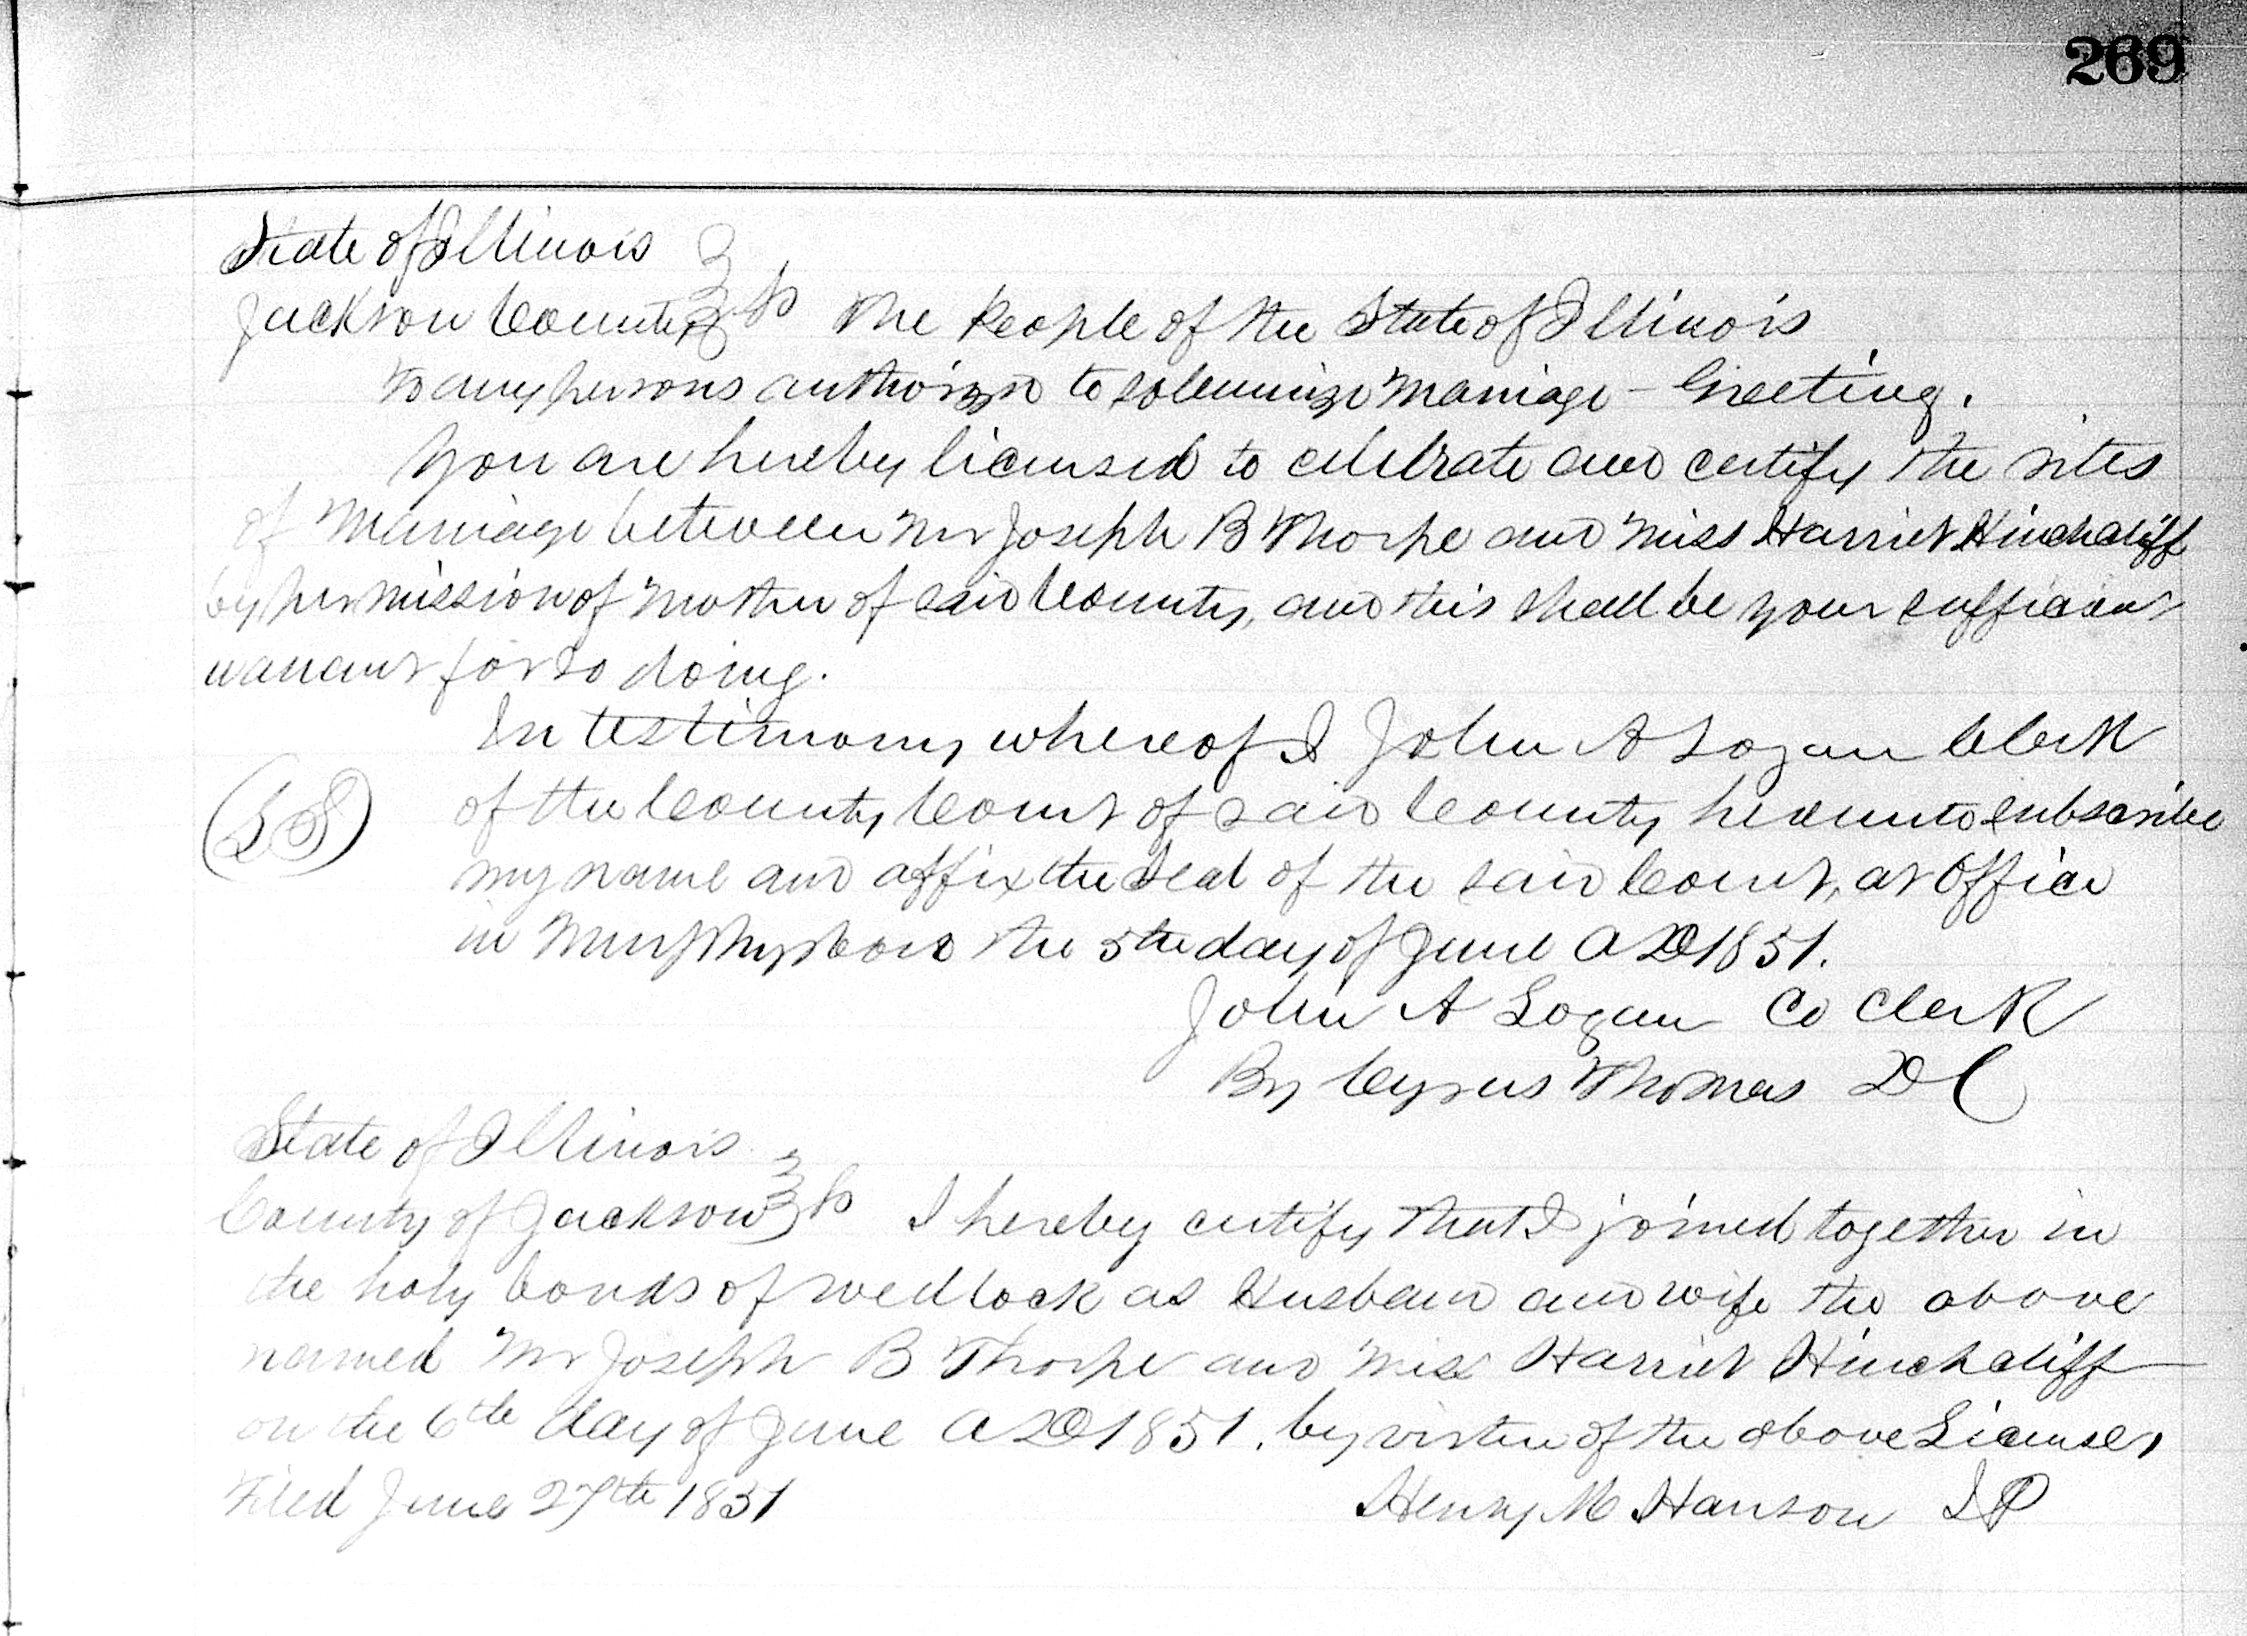 269
State of Illinois
Jackson County } ss The People of the State of Illinois
To any persons authorized to solemnize Marriage - Greeting.
You are hereby licensed to celebrate and certify the rites
of Marriage between Mr Joseph B Thorpe and Miss Harriet Hinchcliff
by permission of Mother of said County, and this shall be your sufficient
warrant for so doing.
In testimony whereof I John A Logan Clerk
(LS) of the County Court of said County hereunto subscribe
my name and affix the Seal of the said Court, at Office
in Murphysboro the 5th day of June AD 1851.
John A Logan Co Clerk
By Cyrus Thomas DC
State of Illinois
County of Jackson } ss I hereby certify that I joined together in
the holy bonds of wedlock as Husband and wife the above
named Mr Joseph B Thorpe and Miss Harriet Hinchcliff
on the 6th day of June AD 1851, by virtue of the above License,
Filed June 27th 1851 Henry M Hanson JP